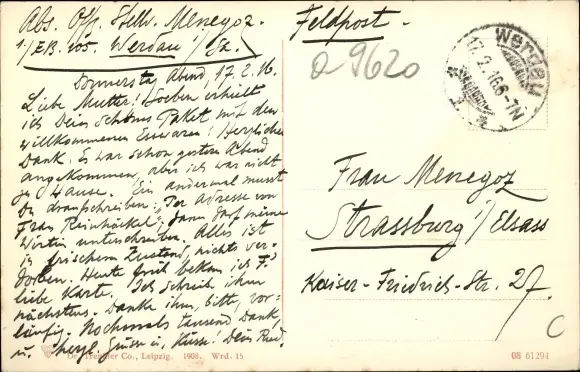 Abs. Off. Stellv. Menegoz.
1./E.B. 105. Werdau i/Sa.
Donnerstag Abend, 17.2.16.
Liebe Mutter! Soeben erhielt
ich Dein schönes Paket mit den
willkommenen Esswaren! Herzlichen
Dank. Es war schon gestern Abend
angekommen, aber ich war nicht
zu Hause. Ein andermal musst
Du draufschreiben: "Per Adresse von
Frau Reinhäckel"; dann darf meine
Wirtin unterschreiben. Alles ist
in frischem Zustand, nichts ver-
dorben. Heute früh bekam ich F's
liebe Karte. Ich schreib ihm
nächstens. Danke ihm, bitte, vor-
läufig. Nochmals tausend Dank,
u. herzl. Grüsse u. Küsse! Dein
Dr. Trenkler Co., Leipzig. 1908. Wrd. 15
Feldpost.
a 9620
Werdau
17.2.16 6-7N
Frau Menegoz
Strassburg i/Elsass
Kaiser-Friedrich-Str. 27.
C
08 61294